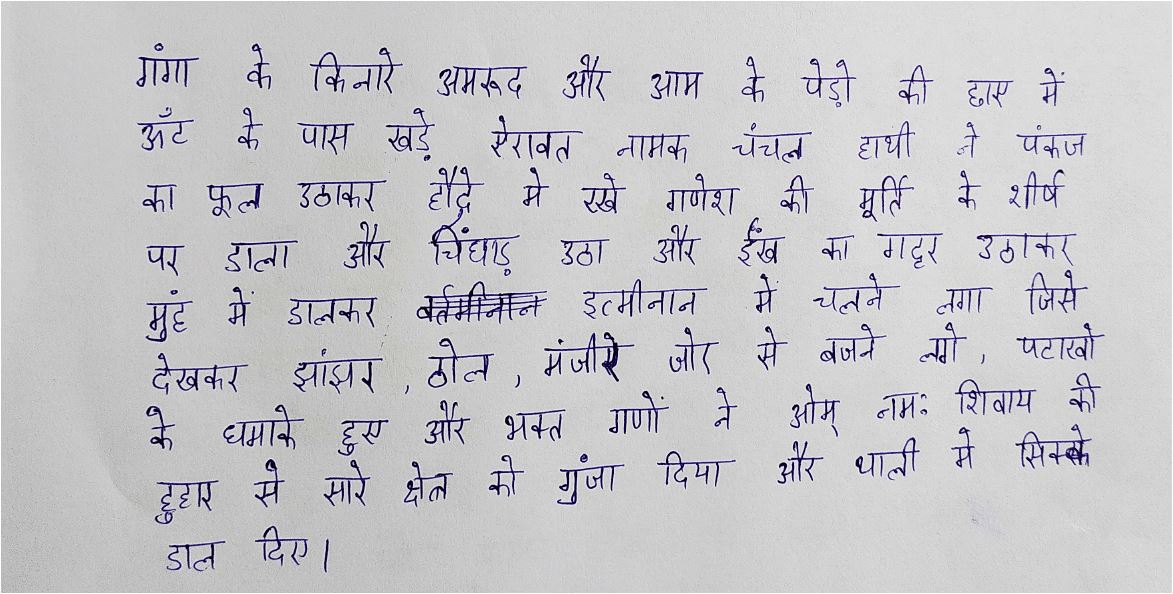 गंगा के किनारे अमरूद और आम के पेड़ो की छाए में
ऊँट के पास खड़े ऐरावत नामक चंचल हाथी ने पंकज
का फूल उठाकर हौद्रे मे रखे गणेश की मूर्ति के शीर्ष
पर डाला और चिंघाड़ उठा और ईंख का गट्टर उठाकर
मुंह में डालकर इत्मीनान में चलने लगा जिसे
देखकर झांझर, ठोल, मंजीरे जोर से बजने लगे, पटाखो
के धमाके हुए और भक्त गणों ने ओम् नमः शिवाय की
हुहार से सारे क्षेत्र को गुंजा दिया और थाली मे सिक्के
डाल दिए।